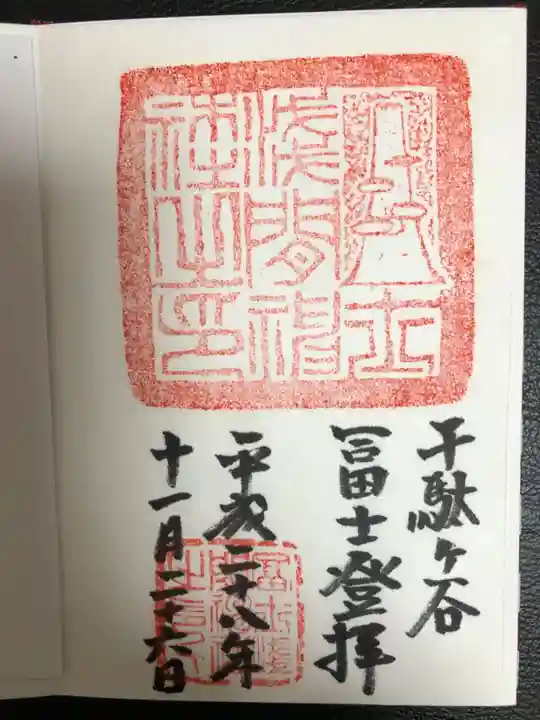 富士
浅間神
社之印
千駄ヶ谷
冨士登拝
平成二十八年
十一月二十六日